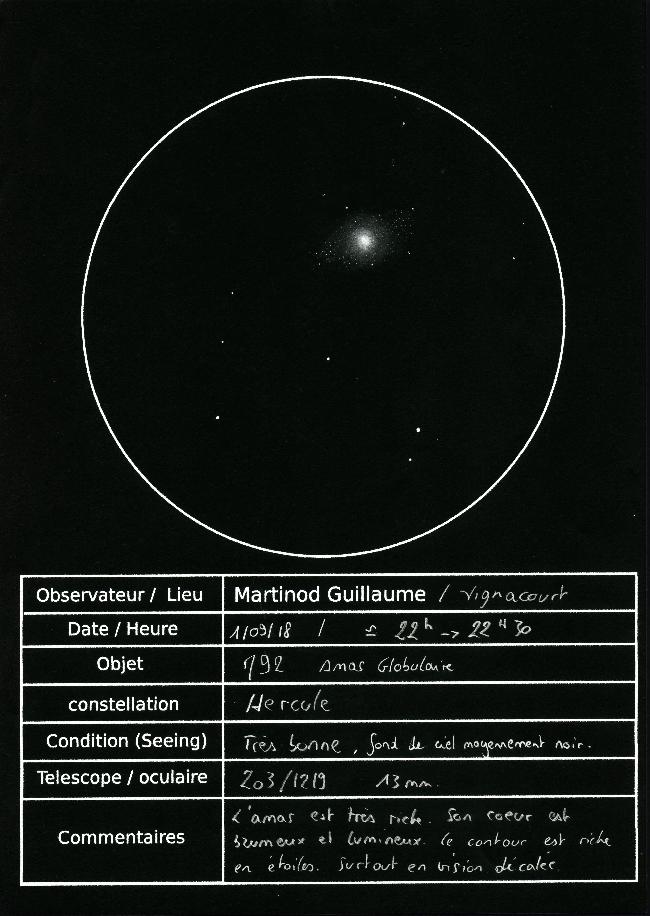 Observateur / Lieu Martinod Guillaume / Vignacourt
Date / Heure 1/09/18 / ≃ 22h -> 22H30
Objet M92 Amas Globulaire
constellation Hercule
Condition (Seeing) Très bonne, fond de ciel moyennement noir.
Telescope / oculaire 203/1219 13mm.
Commentaires
L'amas est très riche. Son coeur est
brumeux et lumineux. Le contour est riche
en étoiles. Surtout en vision décalée.